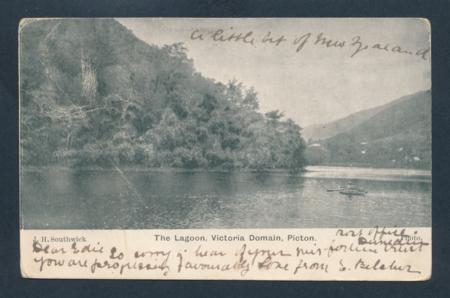 a little bit of New Zealand
J. H. Southwick
The Lagoon, Victoria Domain, Picton.
Photo.
post office
Dunedin
Dear Edie so sorry to hear of your misfortune trust
you are progressing favourably love from E. Belcher